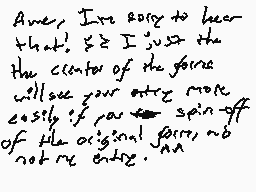 Awww, I'm sorry to hear
that! I just the
the creator of the forme
will see your entry more
easily if you spin-off
of the original forme, no
not my entry. ^^